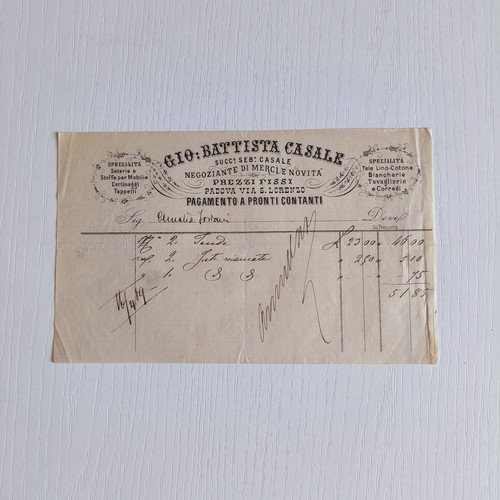 GIO: BATTISTA CASALE
SUCC. SEB. CASALE
NEGOZIANTE DI MERCI E NOVITÀ
PREZZI FISSI
PADOVA VIA S. LORENZO
PAGAMENTO A PRONTI CONTANTI
SPECIALITÀ
Seterie e
Stoffe per Mobilie
Cortinaggi
Tappeti
SPECIALITÀ
Tele Lino-Cotone
Biancherie
Tovaglierie
e Corredi
Sig. Amalia Deve
2. £ 23 00 46 00
2. " 2 50 5 10
1. " 75
51 85